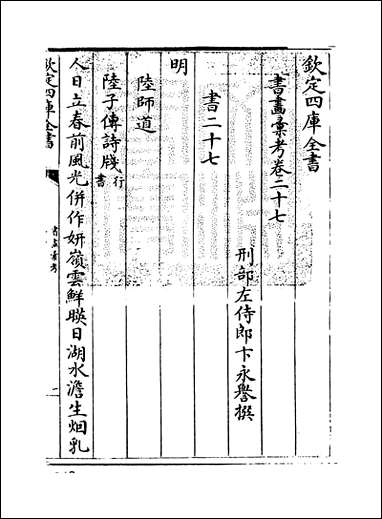 欽定四庫全書
書畫彙考卷二十七
刑部左侍郎卞永譽撰
書二十七
明
陸師道
陸子傳詩牋行書
人日立春前風光併作妍嶺雲鮮映日湖水澹生烟乳
欽定四庫全書
書畫彙考